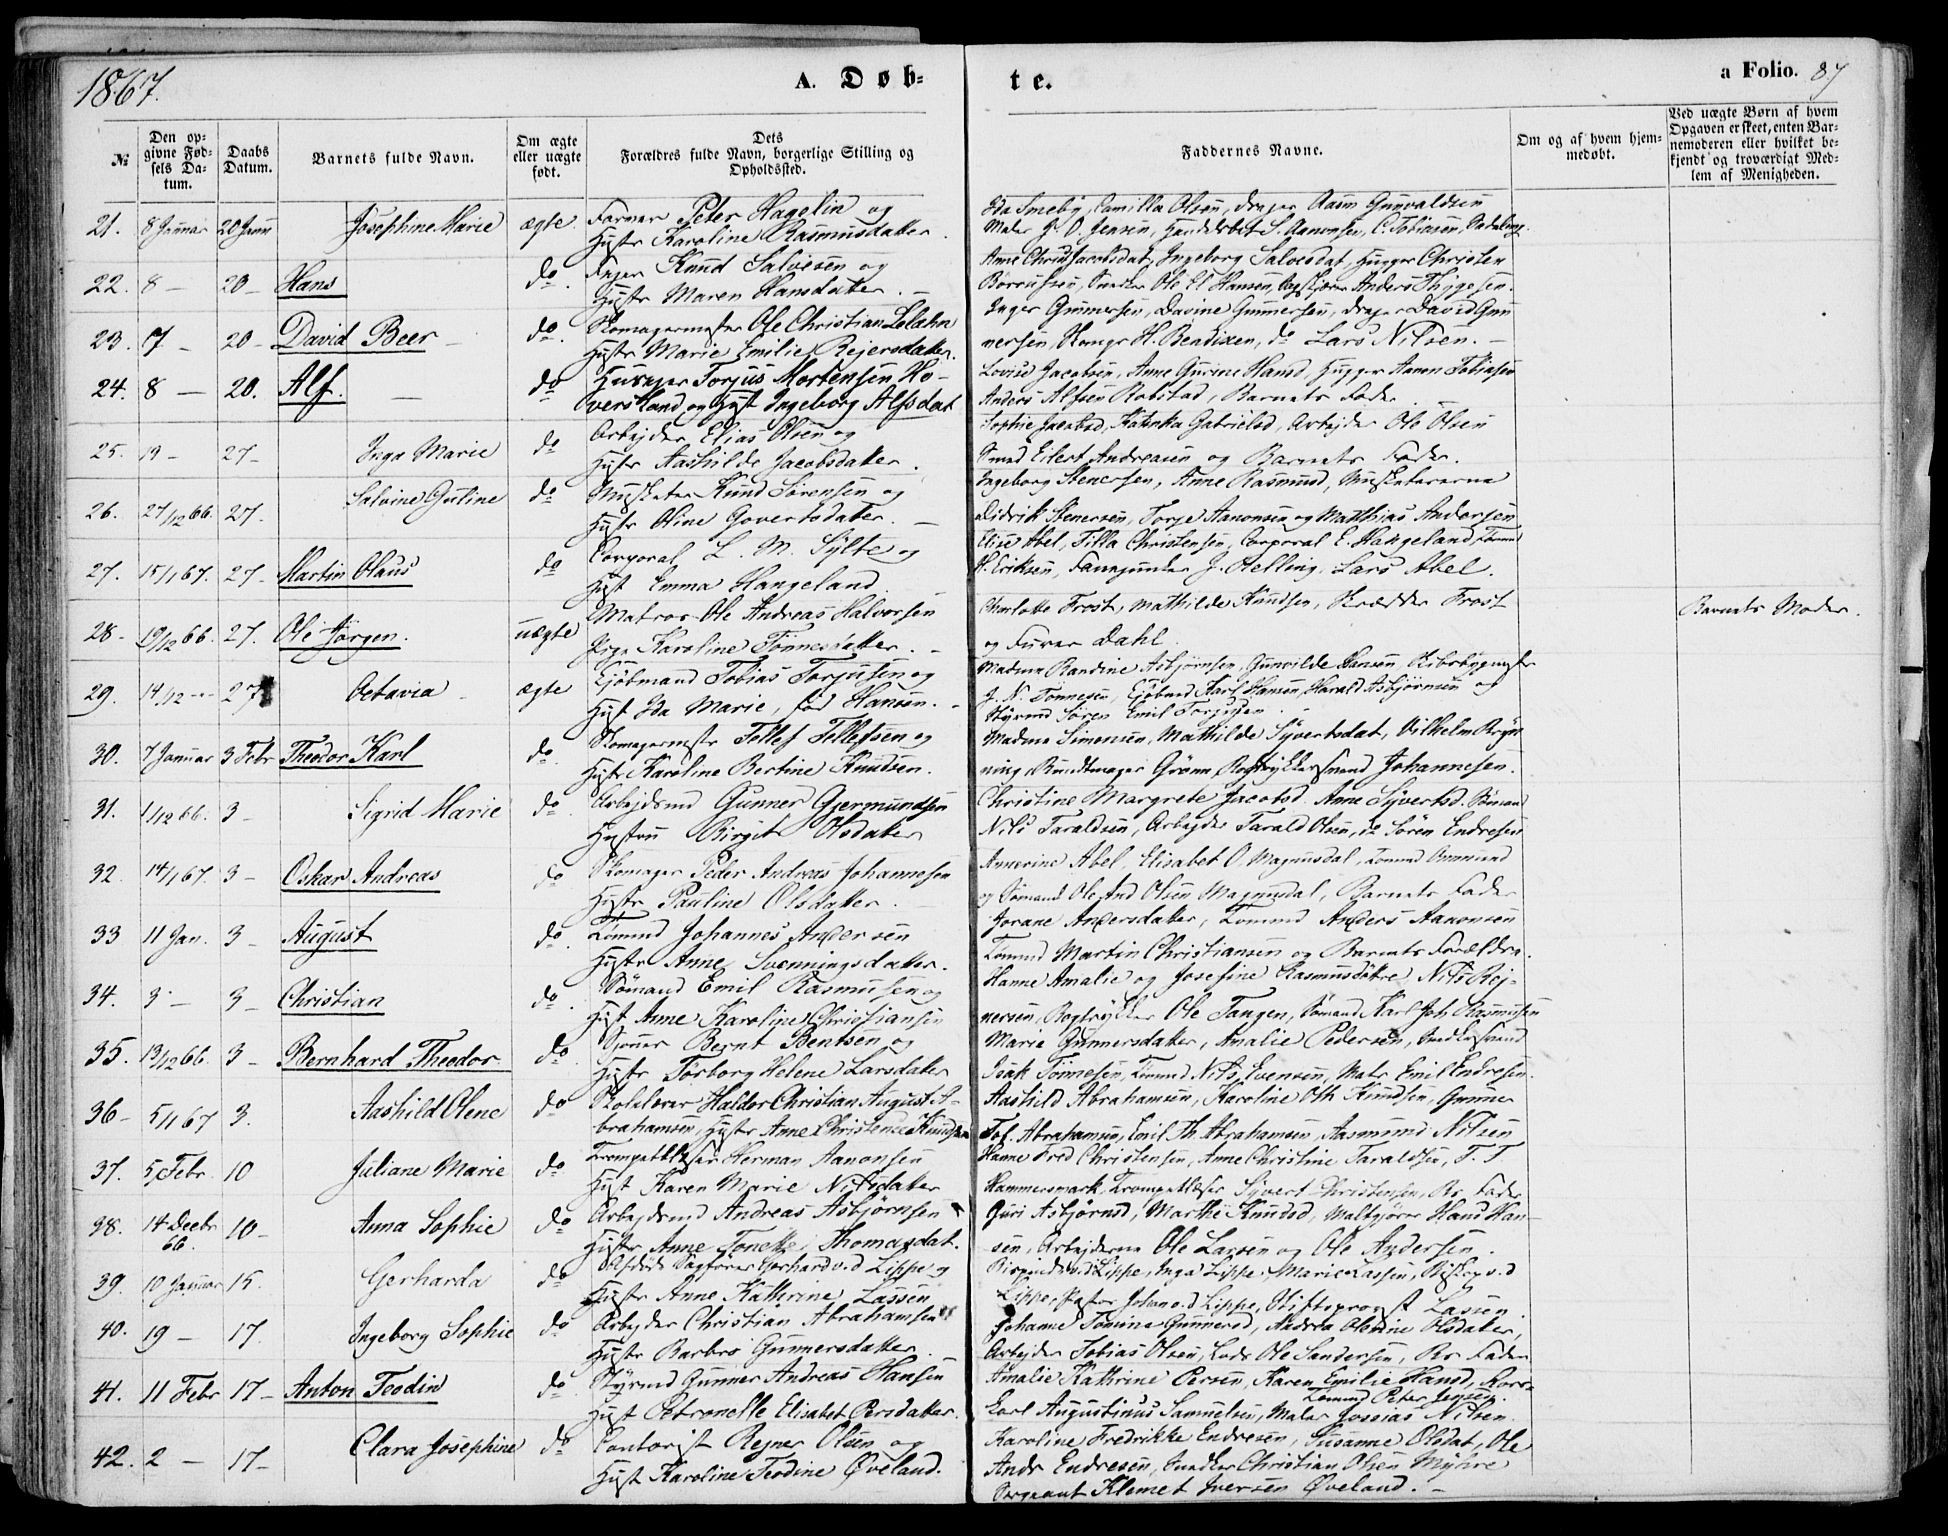 1867.
A. Døb-
te.
a Folio. 87
№
Den op-
givne Fød-
sels Da-
tum.
Daabs
Datum.
Barnets fulde Navn.
Om ægte
eller uægte
født.
Dets
Forældres fulde Navn, borgerlige Stilling og
Opholdssted.
Faddernes Navne.
Om og af hvem hjem-
medøbt.
Ved uægte Børn af hvem
Opgaven er skeet, enten Bar-
nemoderen eller hvilket be-
kjendt og troværdigt Med-
lem af Menigheden.
21. 8 Januar 20 Janu Josephine Marie ægte Farver Peter Hagelin og
Hustr Karoline Rasmusdatter.
Ida Smeby, Camilla Olsen, Drager Aasm Gunvaldsen
Maler J. O. Jensen, S. Aanonsen, C. Tobiasen,
22. 8 — 20 — Hans do. Knud Salvesen og
Hustr Maren Hansdatter. —
Anne Christ Jacobsdat, Ingeborg Salvesdat, Hugger Christen
Ole El Hansen, Anders Thygesen.
23. 7 — 20 — David Beer — do. Skomagermester Ole Christian
Hustr Marie Emilie Rejersdatter.
Inger Gunnersen, Davine Gunnersen, Drager David Gun
nersen, H. Bendixen, do Lars Nilsen. —
24. 8 — 20. Alf. — do Torjus Mortensen Ho-
versland og Hust Ingeborg Alfsdat
Lovise Jacobsen, Anne Gurine Hansd, Hugger Aanon Tobiasen
Anders Alfsen Robstad, Barnets Fader
25. 13 — 27 — Inga Marie do Arbejder Elias Olsen og
Hustr Aashilde Jacobsdatter.
Sophie Jacobsd, Katinka Gabrielsd, Arbejder Ole Olsen
Smed Eilert Andreasen og Barnets Fader.
26. 27/12 66. 27. Salvine Guline do Musketer Knud Sørensen og
Hustr Oline Govertsdatter. —
Ingeborg Stenersen, Anne Rasmusd, Musketererne
Didrik Stenersen, Torje Aanonsen og Matthias Andersen
27. 15/1 67. 27 — Martin Olaus do Corporal L. M. Sylte og
Hust Emma Haugeland
Elise Abel, Tilla Christensen, Corporal E. Haugeland,
H. Eriksen, J. Relling, Lars Abel.
28 — 19/12 66. 27. Ole Jørgen. uægte Matros Ole Andreas Halvorsen
Pige Karoline Tønnesdatter. —
Charlotte Frost, Mathilde Knudsen, Skrædder Frost
og Furer Dahl.
Barnets Moder.
29. 14/12 — 27 Octavia — ægte Kjøbmand Tobias Torjusen og
Hust Ida Marie, fød Hansen. —
Madam Randine Asbjørnsen, Gunvilde Hansen, Skibsbygmester
J. N. Tønnesen, Kjøbmd Karl Hansen, Harald Asbjørnsen og
Styrmd Søren Emil Torjusen.
30. 7 Januar 3 Febr Theodor Karl do Skomagermestr Tellef Tellefsen og
Hustr Karoline Bertine Knudsen.
Madam Simonsen, Mathilde Syvertsdat, Vilhelm Bryn
ning, Bundtmager Grønn, Bogtrykkersvend Johannesen.
31. 1/12 66. 3 — Sigrid Marie do Arbejdsmd Gunner Gjermundsen
Hustru Birgit Olsdatter
Christine Margrete Jacobsd. Anne Syvertsd. Sømand
Nils Taraldsen, Arbejder Tarald Olsen, do Søren Endresen
32. 14/1 67. 3 — Oskar Andreas do Skomager Peder Andreas Johannesen
Hustr Pauline Olsdatter.
Annerine Abel, Elisabet O. Magnusdal, Tømmd
og Sømand Ole And Olsen Magnusdal, Barnets Fader
33 11 Jan. 3 — August do. Tømmd Johannes Andersen
Hustr Anne Svenningsdatter.
Jorane Andersdatter, Tømmd Anders Aanonsen
Tømmd Martin Christiansen og Barnets Forældre.
34. 3 — 3 — Christian do. Sømand Emil Rasmusen og
Hust Anne Karoline Christiansen
Hanne Amalie og Josefine Rasmusdøtre, Nils Rej-
nersen, Bogtrykker Ole Tangen, Sømand Karl Joh Rasmusen
35. 13/12 66. 3 — Bernhard Theodor do Bernt Bentsen og
Hustr Torborg Helene Larsdatter
Marie Gunnersdatter, Amalie Pedersen,
Isak Tønnesen, Tømmd Nils Evensen, Maler Emil Endresen.
36 — 5/1 67 3. Aashild Olene do Skolelærer Haldor Christian August A-
brahamsen, Hustr Anne Christense Knudsen
Aashild Abrahamsen, Karoline Oth Knudsen, Gunner
Tol. Abrahamsen, Emil Th. Abrahamsen, Aasmund Nilsen
37. 5 Febr. 10 Juliane Marie do Trompetblæser Herman Aanonsen
Hust Karen Marie Nilsdatter
Hanne Fred Christensen, Anne Christine Taraldsen, T. T
Hammersmark, Trompetblæser Syvert Christensen, Bs Fader
38. 14 Decbr 66. 10 — Anna Sophie do Arbejdsmd Andreas Asbjørnsen
Hustr Anne Tonette Thomasdat.
Guri Asbjørnsd, Marthe Knudsd, Maltgjører Hans Han-
sen, Arbejderne Ole Larsen og Ole Andersen.
39. 10 Januar 15. Gerharda do Sagfører Gerhard v. d Lippe og
Hustr Anne Kathrine Lassen
Bispinde v. d Lippe, Inga Lippe, Marie Lassen, Biskop v. d
Lippe, Pastor Johan v. d Lippe, Stiftsprovst Lassen
40. 19 — 17. Ingeborg Sophie do Arbejder Christian Abrahamsen
Hustr Barbro Gunnersdatter.
Johanne Tomine Gunnersd, Andrea Olevine Olsdatter,
Arbejder Tobias Olsen, Lods Ole Sandersen, Bs Fader
41. 11 Febr 17 — Anton Teodin do Styrmd Gunner Andreas Hansen
Hust Petronelle Elisabet Persdatter.
Amalie Kathrine Persen, Karen Emilie Hansd,
Tømmd Peter Jensen
Carl Augustinus Samuelsen, Maler Jossias Nilsen.
42. 2 — 17 — Clara Josephine do Contorist Rejner Olsen og
Hust Karoline Teodine Øveland.
Karoline Fredrikke Endresen, Susanne Olsdat, Ole
Andr Endresen, Snedker Christian Olsen Myhre
Sergeant Klemet Iversen Øveland. —